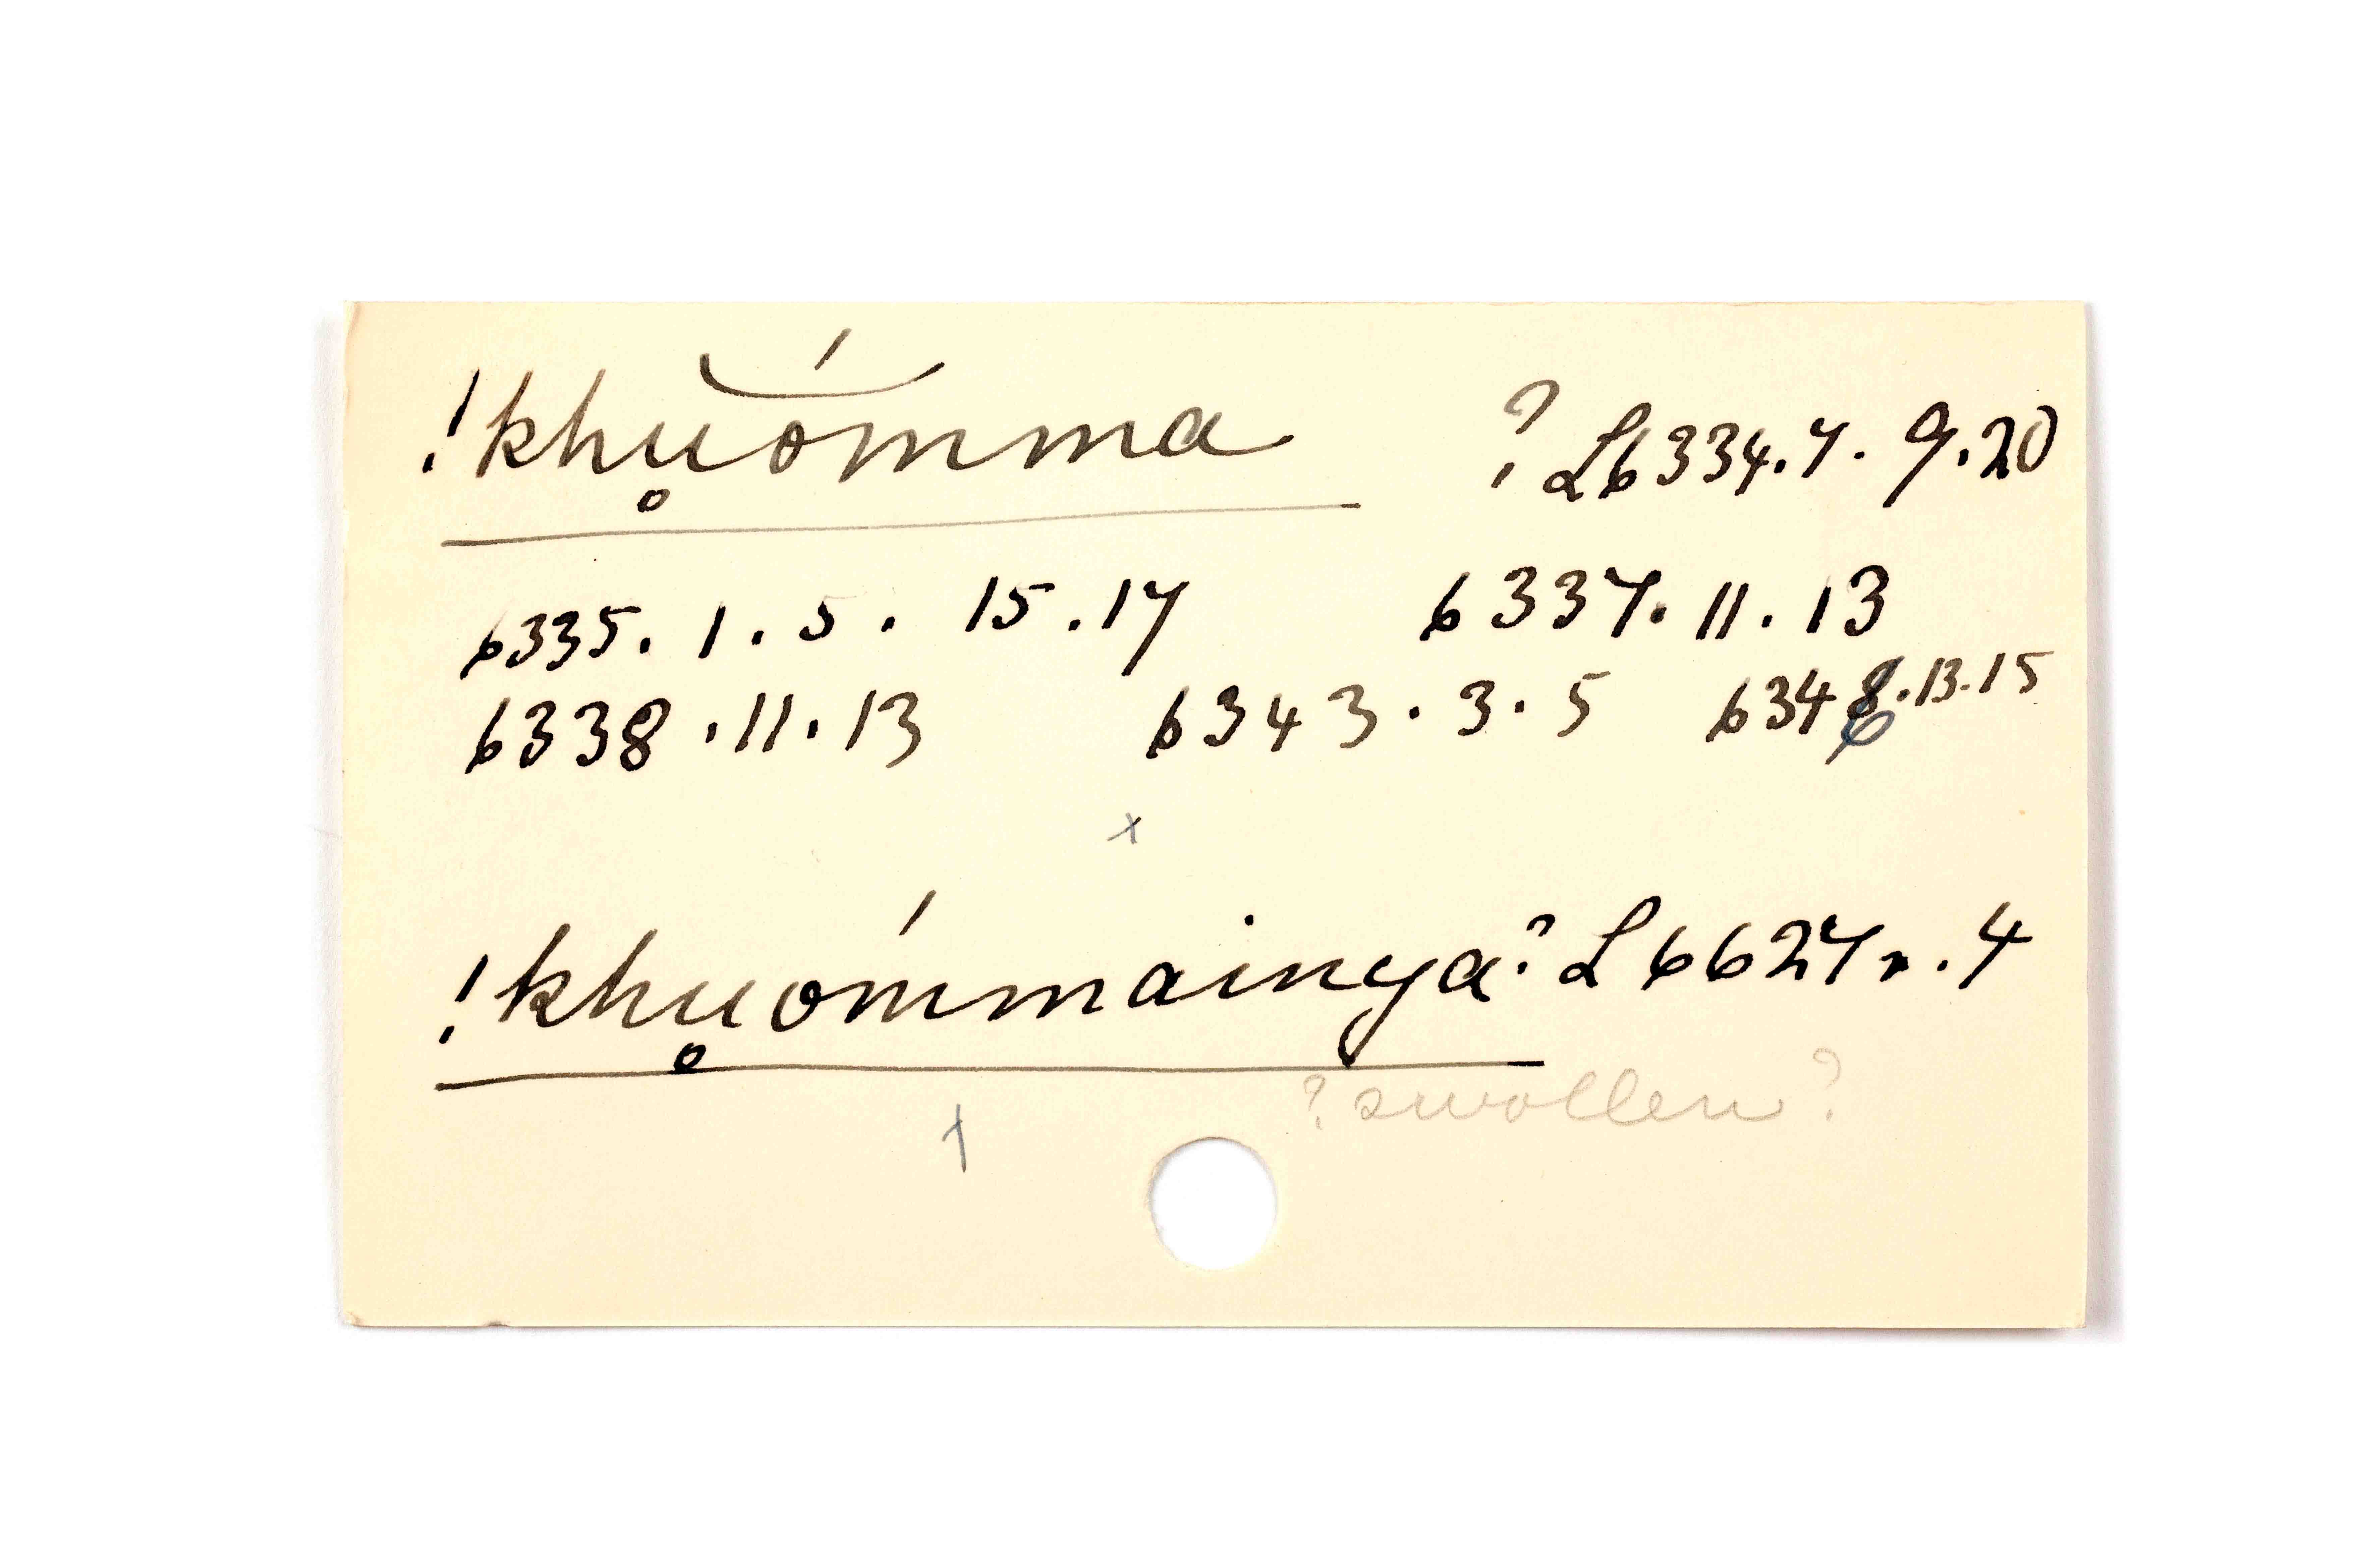 !khu̥͝ómma ? L6334.7. 9.20
6335. 1. 5. 15.17 6337. 11. 13
6338.11.13 6343.3.5 6348.13.15
6
x
!khu̥ómmainya? L6627r.4
? swollen ?